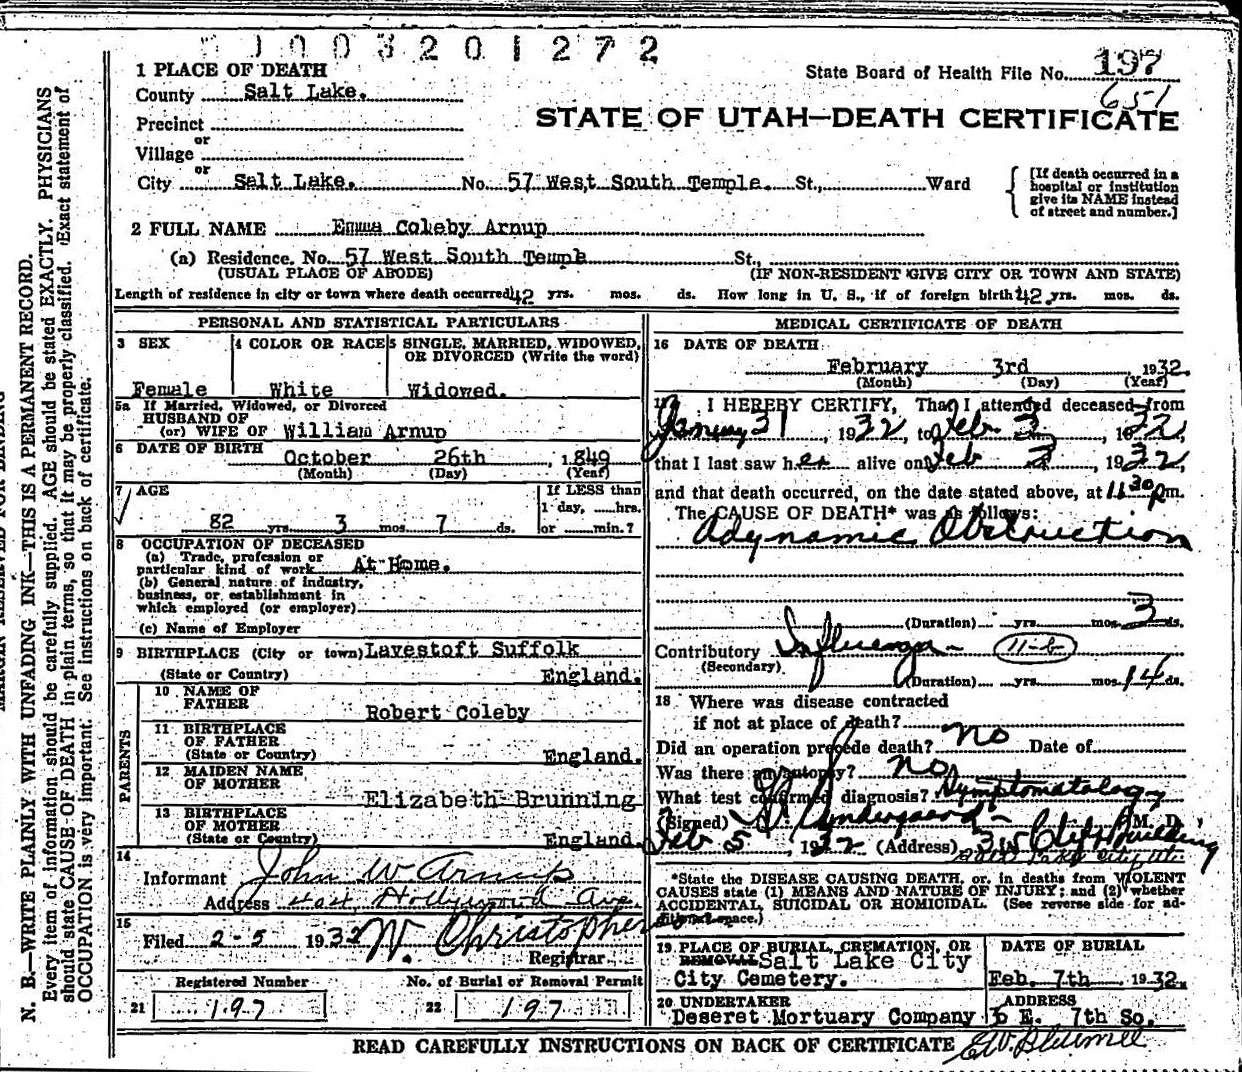 003201272
1 PLACE OF DEATH
State Board of Health File No. 197
651
County Salt Lake.
STATE OF UTAH—DEATH CERTIFICATE
Precinct
or
Village
or
City Salt Lake. No. 57 West South Temple. St., Ward
[If death occurred in a hospital or institution give its NAME instead of street and number.]
2 FULL NAME Emma Coleby Arnup
(a) Residence. No. 57 West South Temple St.,
(USUAL PLACE OF ABODE) (IF NON-RESIDENT GIVE CITY OR TOWN AND STATE)
Length of residence in city or town where death occurred 42 yrs. mos. ds. How long in U. S., if of foreign birth 42 yrs. mos. ds.
PERSONAL AND STATISTICAL PARTICULARS
3 SEX
Female
4 COLOR OR RACE
White
5 SINGLE, MARRIED, WIDOWED, OR DIVORCED (Write the word)
Widowed.
5a If Married, Widowed, or Divorced
HUSBAND OF
(or) WIFE OF William Arnup
6 DATE OF BIRTH
October 26th, 1849
(Month) (Day) (Year)
7 AGE
82 yrs. 3 mos. 7 ds.
If LESS than
1 day, hrs.
or min.?
8 OCCUPATION OF DECEASED
(a) Trade, profession or
particular kind of work At Home.
(b) General nature of industry,
business, or establishment in
which employed (or employer)
(c) Name of Employer
9 BIRTHPLACE (City or town) Lavestoft Suffolk
(State or Country) England.
PARENTS
10 NAME OF
FATHER Robert Coleby
11 BIRTHPLACE
OF FATHER
(State or Country) England.
12 MAIDEN NAME
OF MOTHER
Elizabeth Brunning
13 BIRTHPLACE
OF MOTHER
(State or Country) England.
14
Informant John W Arnup
Address East Hollywood Ave.
15
Filed 2-5 1932 W. Christopherson
Registrar
Registered Number
21 197
No. of Burial or Removal Permit
22 197
MEDICAL CERTIFICATE OF DEATH
16 DATE OF DEATH
February 3rd, 1932.
(Month) (Day) (Year)
17 I HEREBY CERTIFY, That I attended deceased from
January 31, 1932, to Feb 3, 1932,
that I last saw her alive on Feb 3, 1932,
and that death occurred, on the date stated above, at 11 30 p m.
The CAUSE OF DEATH* was as follows:
Adynamic Obstruction
(Duration) yrs. mos. 3 ds.
Contributory Influenza 11-b
(Secondary)
(Duration) yrs. mos. 14 ds.
18 Where was disease contracted
if not at place of death?
Did an operation precede death? no Date of
Was there an autopsy? no
What test confirmed diagnosis? Symptomatology
(Signed) M. D.
Feb 5, 1932 (Address) City Building
Salt Lake City, Ut.
*State the DISEASE CAUSING DEATH, or, in deaths from VIOLENT
CAUSES state (1) MEANS AND NATURE OF INJURY; and (2) whether
ACCIDENTAL, SUICIDAL OR HOMICIDAL. (See reverse side for ad-
ditional space.)
19 PLACE OF BURIAL, CREMATION, OR
REMOVAL Salt Lake City
City Cemetery.
DATE OF BURIAL
Feb. 7th 1932.
20 UNDERTAKER
Deseret Mortuary Company
ADDRESS
E. 7th So.
READ CAREFULLY INSTRUCTIONS ON BACK OF CERTIFICATE
MARGIN RESERVED FOR BINDING
N. B.—WRITE PLAINLY WITH UNFADING INK—THIS IS A PERMANENT RECORD.
Every item of information should be carefully supplied. AGE should be stated EXACTLY. PHYSICIANS
should state CAUSE OF DEATH in plain terms, so that it may be properly classified. Exact statement of
OCCUPATION is very important. See instructions on back of certificate.